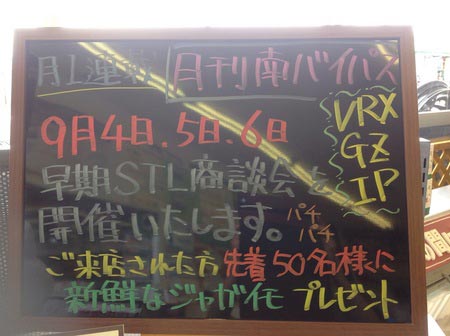 月1連載 月刊南バイパス
9月4日.5日.6日
早期STL商談会を
開催いたします。パチパチ
VRX
GZ
IP
ご来店された方先着50名様くに
新鮮なジャガイモプレゼント